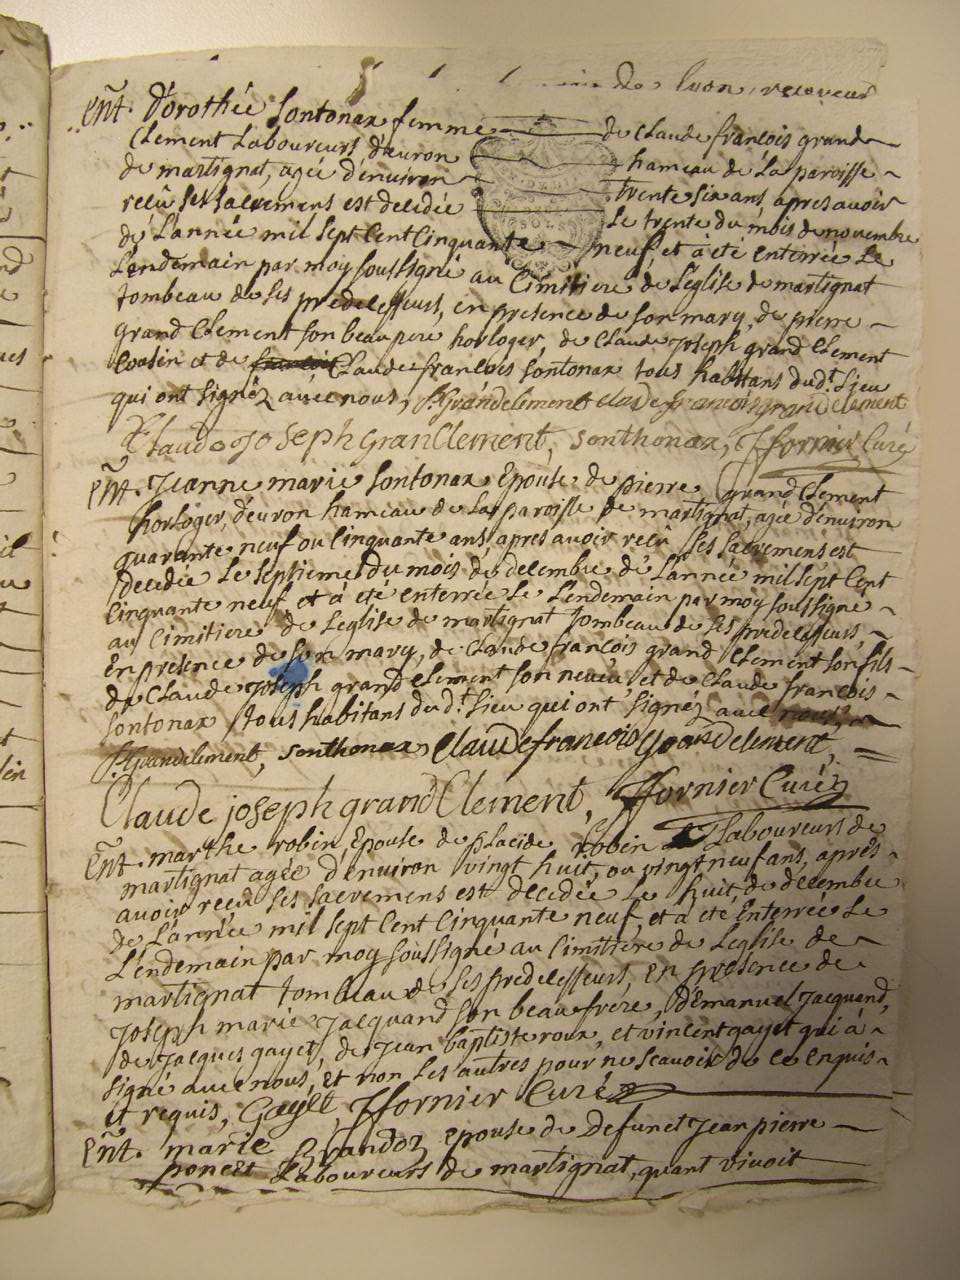 de lyon, receveur
Ent. Dorothée Sontonax femme de Claude françois grand
Clement Laboureurs d'euron hameau de La paroisse
de martignat, agée d'environ trente six ans, apres avoir
recû ses sacremens est decidée Le trente du mois de novembre
dé L'année mil sept Cent Cinquante neuf, et à été enterrée Le
Lendemain par moy soussigné au Cimitiere de L'eglise de martignat
tombeau de ses predecesseurs, en presence de son mary, de pierre
grand Clement son beau pere horloger, de Claude Joseph grand Clement
Cousin et de Claude francois Sontonax tous habitans dud.t Lieu
qui ont signéz avec nous, P. Grandclement claude francois grandclement
Claude Joseph granClement, Sonthonax, J fornier Curé
Ent. Jeanne marie Sontonax Epouse de pierre grand Clement
horloger, d'euron hameau de La paroisse de martignat, agée d'environ
quarante neuf ou Cinquante ans, apres avoir recû Ses Sacremens, est
decidée Le septieme du mois de decembre dé L'année mil sept Cent
Cinquante neuf et à été enterrée Le Lendemain par moy soussigné
au Cimitiere de L'eglise de martignat tombeau de ses predecesseurs,
En presence de son mary, de Claude françois grand Clement son fils
de Claude Joseph grand Clement son neveu, et de Claude francois
Sontonax tous habitans dud.t Lieu qui ont signéz avec nous,
P. Grandclement, Sonthonax, Claude francois grandclement,
Claude joseph grand Clement, J fornier Curé
Ent. marthe robin, Epouse de placide Laboureurs de
martignat agée d'environ vingt huit, ou vingt neuf ans, après
avoir recu ses sacremens est decidée Le huit de decembre
de L'année mil sept Cent Cinquante neuf, et à été Enterrée Le
L'endemain par moy soussigné au Cimitiere de L'eglise de
martignat tombeau de ses predecesseurs, En presence de
Joseph marie Jacquand son beaufrere, d'Emanuel Jacquand,
de Jacques gayet, de Jean baptiste roux, et vincent gayet qui à
signé avec nous, Et non Les autres pour ne scavoir de ce Enquis
Et requis, Gayet, J fornier Curé
Ent. marie Epouse de Defunct Jean pierre
poncet Laboureurs de martignat, quant vivoit